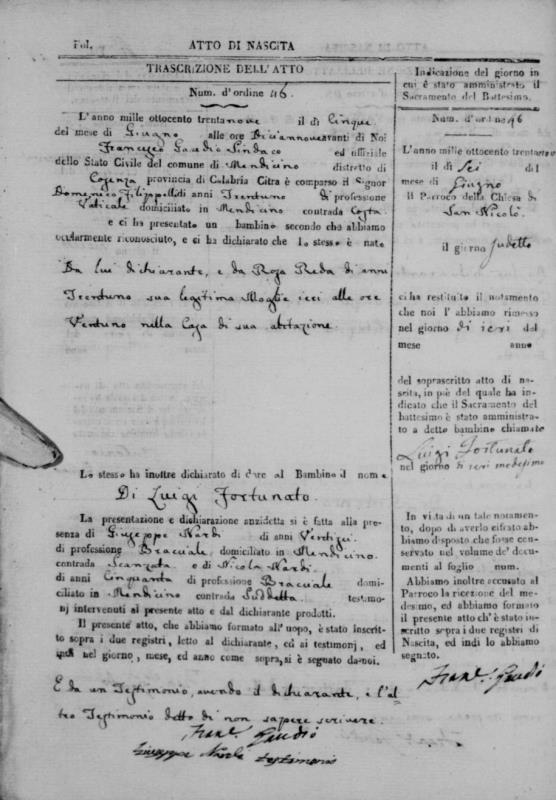 Fol. ATTO DI NASCITA
TRASCRIZIONE DELL'ATTO
Num. d'ordine 46.
L'anno mille ottocento trentanove il dì Cinque
del mese di Giugno alle ore Diciannove avanti di Noi
Francesco Gaudio Sindaco ed uffiziale
dello Stato Civile del comune di Mendicino distretto di
Cosenza provincia di Calabria Citra è comparso il Signor
Domenico Filippelli di anni Trentuno di professione
Vaticale domiciliato in Mendicino contrada Costa
e ci ha presentato un bambino secondo che abbiamo
ocularmente riconosciuto, e ci ha dichiarato che lo stesso è nato
Da lui dichiarante, e da Rosa Reda di anni
Trentuno sua legitima Moglie ieri alle ore
Ventuno nella Casa di sua abitazione.
Lo stesso ha inoltre dichiarato di dare al Bambino il nome
Di Luigi Fortunato.
La presentazione e dichiarazione anzidetta si è fatta alla pre-
senza di Giuseppe Nardi di anni Ventisei
di professione Bracciale domiciliato in Mendicino
contrada Scanzata e di Nicola Nardi
di anni Cinquanta di professione Bracciale domi-
ciliato in Mendicino contrada Suddetta testimo-
nj intervenuti al presente atto e dal dichiarante prodotti.
Il presente atto, che abbiamo formato all'uopo, è stato inscrit-
to sopra i due registri, letto al dichiarante, ed ai testimonj, ed
indi nel giorno, mese, ed anno come sopra, si è segnato da noi.
E da un Testimonio, avendo il dichiarante, e l'al
tro Testimonio detto di non sapere scrivere.
Franc. Gaudio
Giuseppe testimonio
Indicazione del giorno in
cui è stato amministrato il
Sacramento del Battesimo.
Num. d'ordine 46
L'anno mille ottocento trentanove
il dì Sei del
mese di Giugno
Il Parroco della Chiesa di
San Nicolò
il giorno sudetto
ci ha restituito il notamento
che noi l'abbiamo rimesso
nel giorno di ieri del
mese anno
del soprascritto atto di na-
scita, in piè del quale ha in-
dicato che il Sacramento del
battesimo è stato amministra-
to a detto bambino chiamato
Luigi Fortunato
nel giorno di ieri medesimo
In vista di un tale notamen-
to, dopo di averlo cifrato ab-
biamo disposto che fosse con-
servato nel volume de' docu-
menti al foglio num.
Abbiamo inoltre accusato al
Parroco la ricezione del me-
desimo, ed abbiamo formato
il presente atto ch'è stato in-
scritto sopra i due registri di
Nascita, ed indi lo abbiamo
segnato.
Franc. Gaudio